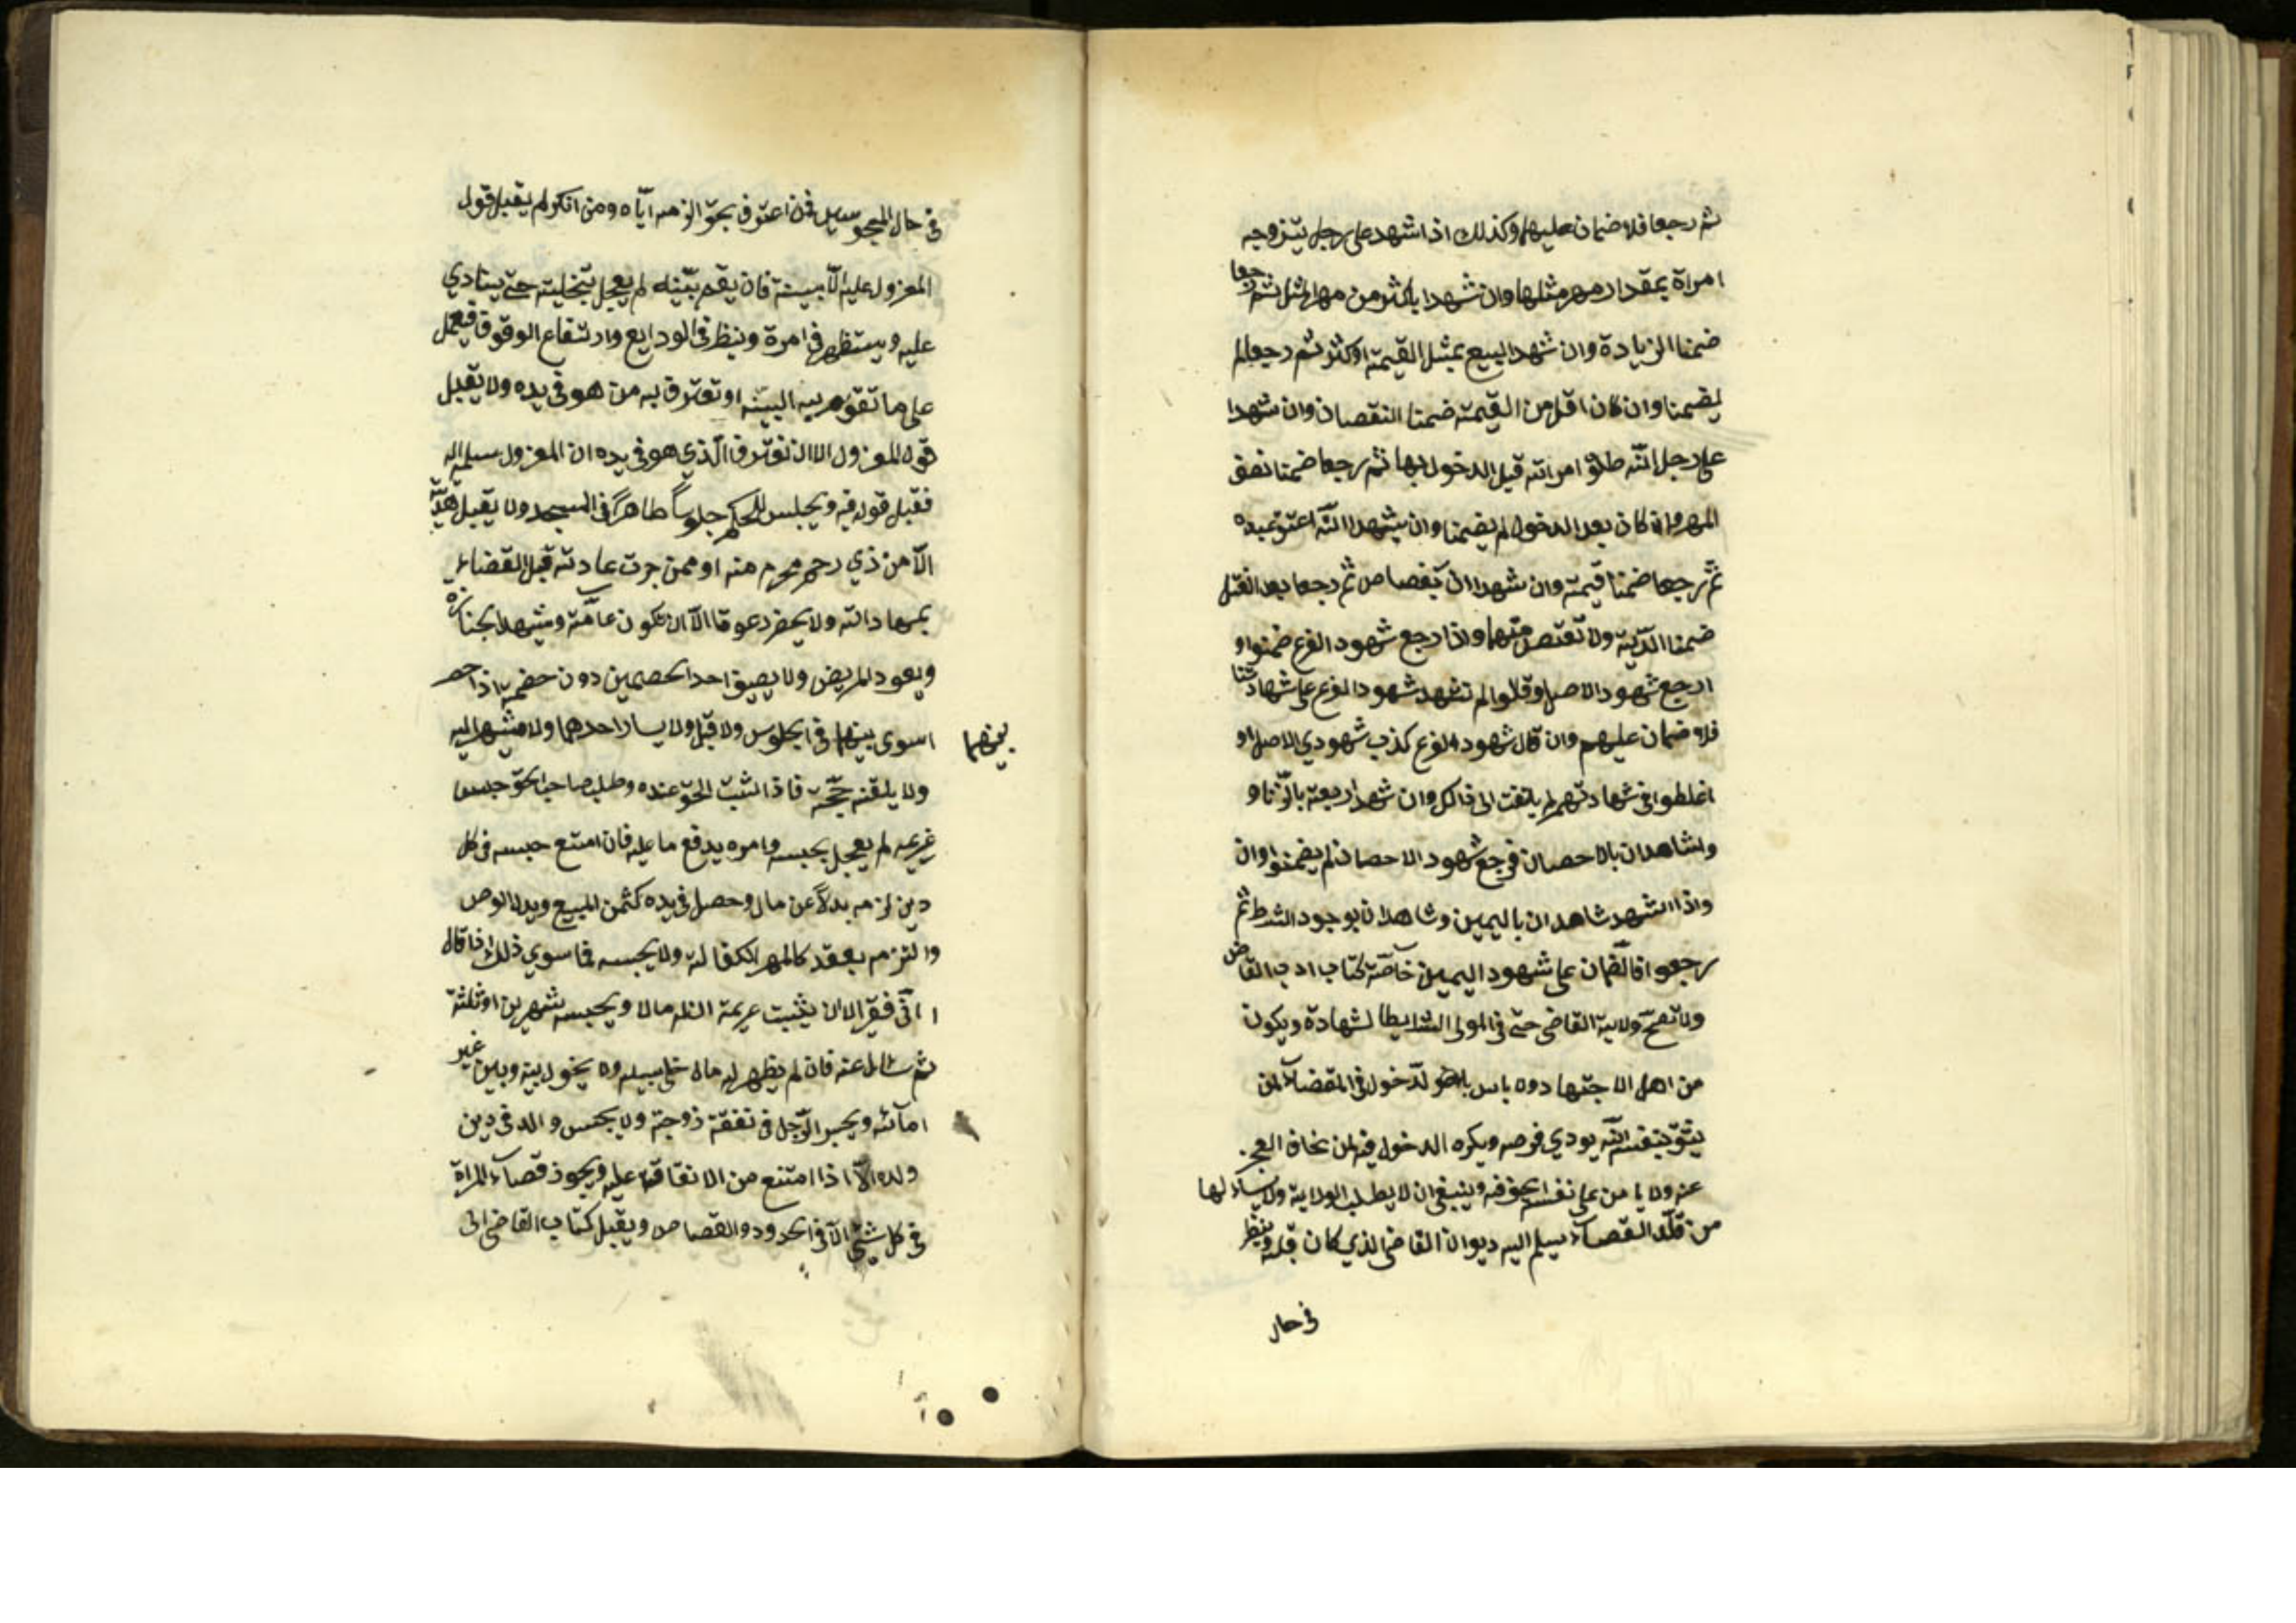 ثم رجعا فلا ضمان عليهما وكذلك اذا اشهد على رجل يتزوجه
امراة بمقدار مهر مثلها وان شهدا باكثر من مهر المثل ثم رجعا
ضمنا الزيادة وان شهدا لبيع بمثل القيمة او كثر ثم رجعا لم
يضمنا وان كان اقل من القيمة ضمنا النقصان وان شهدا
على رجل انّه طلق امراته قبل الدخول بها ثم رجعا ضمنا نصف
المهر وان كان بعد الدخول لم يضمنا وان يشهدا انّه اعتق عبده
ثم رجعا ضمنا قيمته وان شهدا الى بقصاص ثم رجعا بعد القتل
ضمنا الدّية ولا تقتص منهما واذا رجع شهود الفرع ضمنوا و
ارجع شهود الاصل وقالوا لم تشهد شهود الفرع على شهادتنا
فلا ضمان عليهم وان قال شهود الفرع كذب شهودي الاصل او
اغلطوا في شهادتهم لم يلتفت الى ذالك وان شهدا ربعة بالزّنا و
واشاهدان بالاحصان فرجع شهود الاحصان لم يضمنوا وان
واذا الشهد شاهدان باليمين وشاهدان بوجود الشرط ثم
رجعوا فالضمان على شهود اليمين خاصّة كتاب ادب القاضي
ولا تصحّ ولاية القاضي حتّى في المولى الشرايط الشهادة ويكون
من اهل الاجتهاد ولا باس بالدّخول في القضاء لمن
يثق بنفسه انّه يودي فرضه ويكره الدخول فيه لمن يخاف العجز
عنه ولا يامن على نفسه الحيف فيه وينبغي ان لا يطلب الولاية ولا يسال لها
من قلّد القضاء يسلم اليه ديوان القاضي الذي كان قبله وينظر
في حال
في حال المحبوسين فمن اعترف بحق الزمه ايّاه ومن انكر لم يقبل قول
المعزول عليه الّا ببينة فان يقم بيّنه لم يعجل بتخليته حتّى ينادي
عليه ويستظهر في امرة وينظر في الودايع وارتفاع الوقوف فيعمل
على ما تقوم به البيّنه او تعترف به من هو في يده ولا يقبل
قول المعزول الا ان تعترف الّذي هو في يده ان المعزول سلمه اليه
فقبل قوله فيه ويجلس للحكم جلوساً طاهراً في المسجد ولا يقبل هديّة
الّا من ذي رحم محرم منه او ممن جرت عادته قبل القضاء
بمهاداته ولا يحضر دعوة الّا ان تكون عامّة ويشهد الجنازه
ويعود المريض ولا يضيق احد الخصمين دون خصمه اذا حضر
اسوى بينهما في الجلوس ولا قبل ولا يسار احدهما ولا يشير اليه
بينهما
ولا يلقنه حجّة فاذا اثبت الحق عنده وطلب صاحب الحق حبس
غريمه لم يعجل بحبسه وامره يدفع ما عليه فان امتنع حبسه في كل
دين لزمه بدلاً عن مال وحصل في يده كثمن المبيع وبدل الوص
والتزمه بعقد كالمهر الكفالة ولا يحبسه فما سوي ذلك اذا قال
انّي فقير الا ان يثبت غريمة انّ له مالا ويحبسه شهرين او ثلثة
ثم سال عنه فان لم يظهر له مال خلى سبيله ولا يحول بينه وبين غير
امائه ويحبس الرّجل في نفقة زوجته ولا يحبس والد في دين
ولده الّا اذا امتنع من الانفاقه عليه ويجوز قضاء المراة
في كل شيّ الّا في الحدود والقصاص ويقبل كتاب القاضي الى